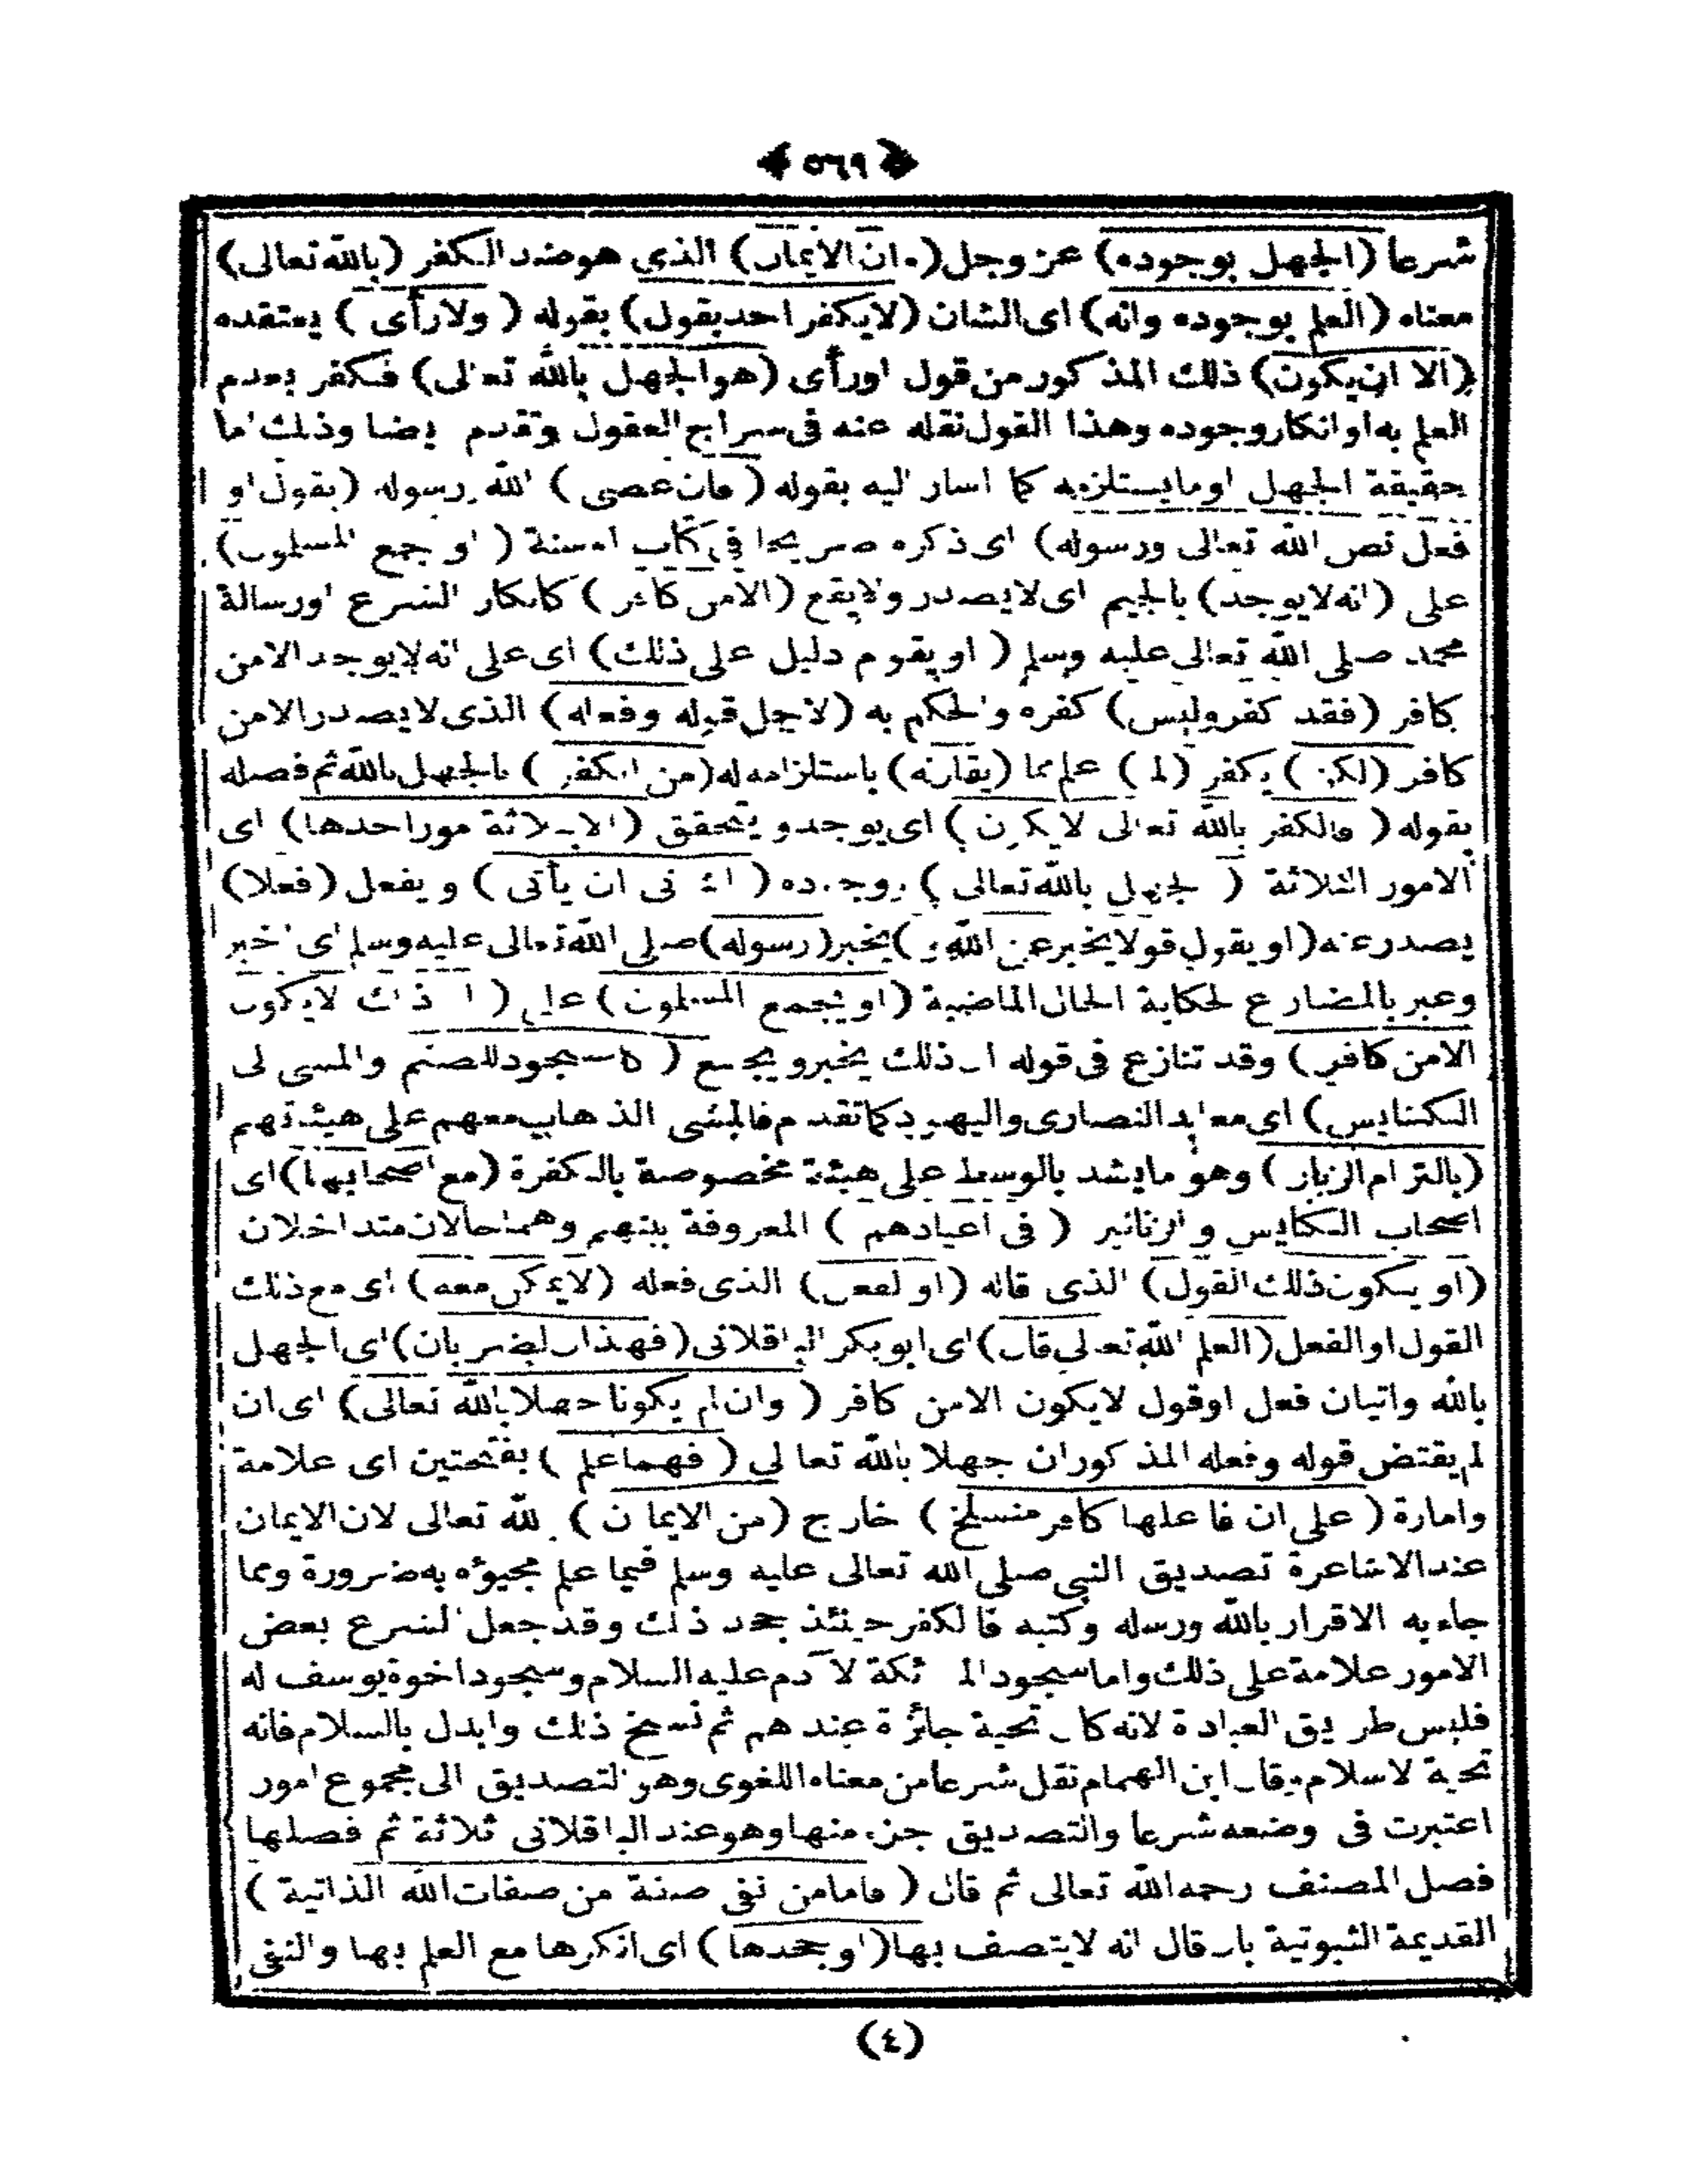 ﴿ ٥٦٩ ﴾
شرعا (الجهل بوجوده) عز وجل (وان الايمان) الذى هو ضد الكفر (بالله تعالى)
معناه (العلم بوجوده وانه) اى الشان (لايكفر احد بقول) بقوله (ولا رأى) يعتقده
(الا ان يكون) ذلك المذكور من قول اورأى (هو الجهل بالله تعالى) فكفر بعدم
العلم به او انكار وجوده وهذا القول نقله عنه فى سراج العقول وتقدم ايضا وذلك اما
حقيقة الجهل اومايستلزمه كما اشار اليه بقوله (فان عصى) الله ورسوله (بقول او
فعل نص الله تعالى ورسوله) اى ذكره صريحا فى كتاب اوسنة (او جمع المسلمون)
على (انه لا يوجد) بالجيم اى لايصدر ولايقع (الامن كافر) كانكار الشرع اورسالة
محمد صلى الله تعالى عليه وسلم (او يقوم دليل على ذلك) اى على انه لا يوجد الامن
كافر (فقد كفر وليس) كفره والحكم به (لاجل قوله وفعله) الذى لا يصدر الامن
كافر (لكن) يكفر (لما) علم مما (يقارنه) باستلزامه له (من الكفر) بالجهل بالله ثم فصله
بقوله (والكفر بالله تعالى لا يكون) اى يوجد ويتحقق (الا بثلاثة امور احدها) اى
الامور الثلاثة (الجهل بالله تعالى) بوجوده (الثانى ان يأتى) ويفعل (فعلا)
يصدر عنه (او يقول قولا يخبر عن الله و) يخبر (رسوله) صلى الله تعالى عليه وسلم اى اخبر
وعبر بالمضارع لحكاية الحال الماضية (او يجمع المسلمون) على (ان ذلك لايكون
الامن كافر) وقد تنازع فى قوله ان ذلك يخبر ويجمع (كالسجود للصنم والمشى الى
الكنايس) اى معابد النصارى واليهود كما تقدم فالمشى الذهاب معهم على هيئتهم
(بالتزام الزنار) وهو مايشد بالوسط على هيئة مخصوصة بالكفرة (مع اصحابها) اى
اصحاب الكنايس والزنانير (فى اعيادهم) المعروفة بينهم وهما حالان متداخلان
(او يكون ذلك القول) الذى قاله (او الفعل) الذى فعله (لايمكن معه) اى مع ذلك
القول او الفعل (العلم بالله تعالى قال) اى ابو بكر الباقلانى (فهذان الضربان) اى الجهل
بالله واتيان فعل اوقول لايكون الامن كافر (وان لم يكونا جهلا بالله تعالى) اى ان
لم يقتض قوله وفعله المذكوران جهلا بالله تعالى (فهما علم) بفتحتين اى علامة
وامارة (على ان فاعلها كافر منسلخ) خارج (من الايمان) بالله تعالى لان الايمان
عند الاشاعرة تصديق النبى صلى الله تعالى عليه وسلم فيما علم مجيؤه به ضرورة ومما
جاء به الاقرار بالله ورسله وكتبه فالكفر حينئذ جحد ذلك وقد جعل الشرع بعض
الامور علامة على ذلك واما سجود الملائكة لآدم عليه السلام وسجود اخوة يوسف له
فليس طريق العبادة لانه كان تحية جائزة عندهم ثم نسخ ذلك وابدل بالسلام فانه
تحية الاسلام وقال ابن الهمام نقل شرعا من معناه اللغوى وهو التصديق الى مجموع امور
اعتبرت فى وضعه شرعا والتصديق جزء منها وهو عند الباقلانى ثلاثة ثم فصلها
فصل المصنف رحمه الله تعالى ثم قال (فاما من نفى صفة من صفات الله الذاتية)
القديمة الثبوتية بان قال انه لا يتصف بها (او جحدها) اى انكرها مع العلم بها والنفى
(٤)